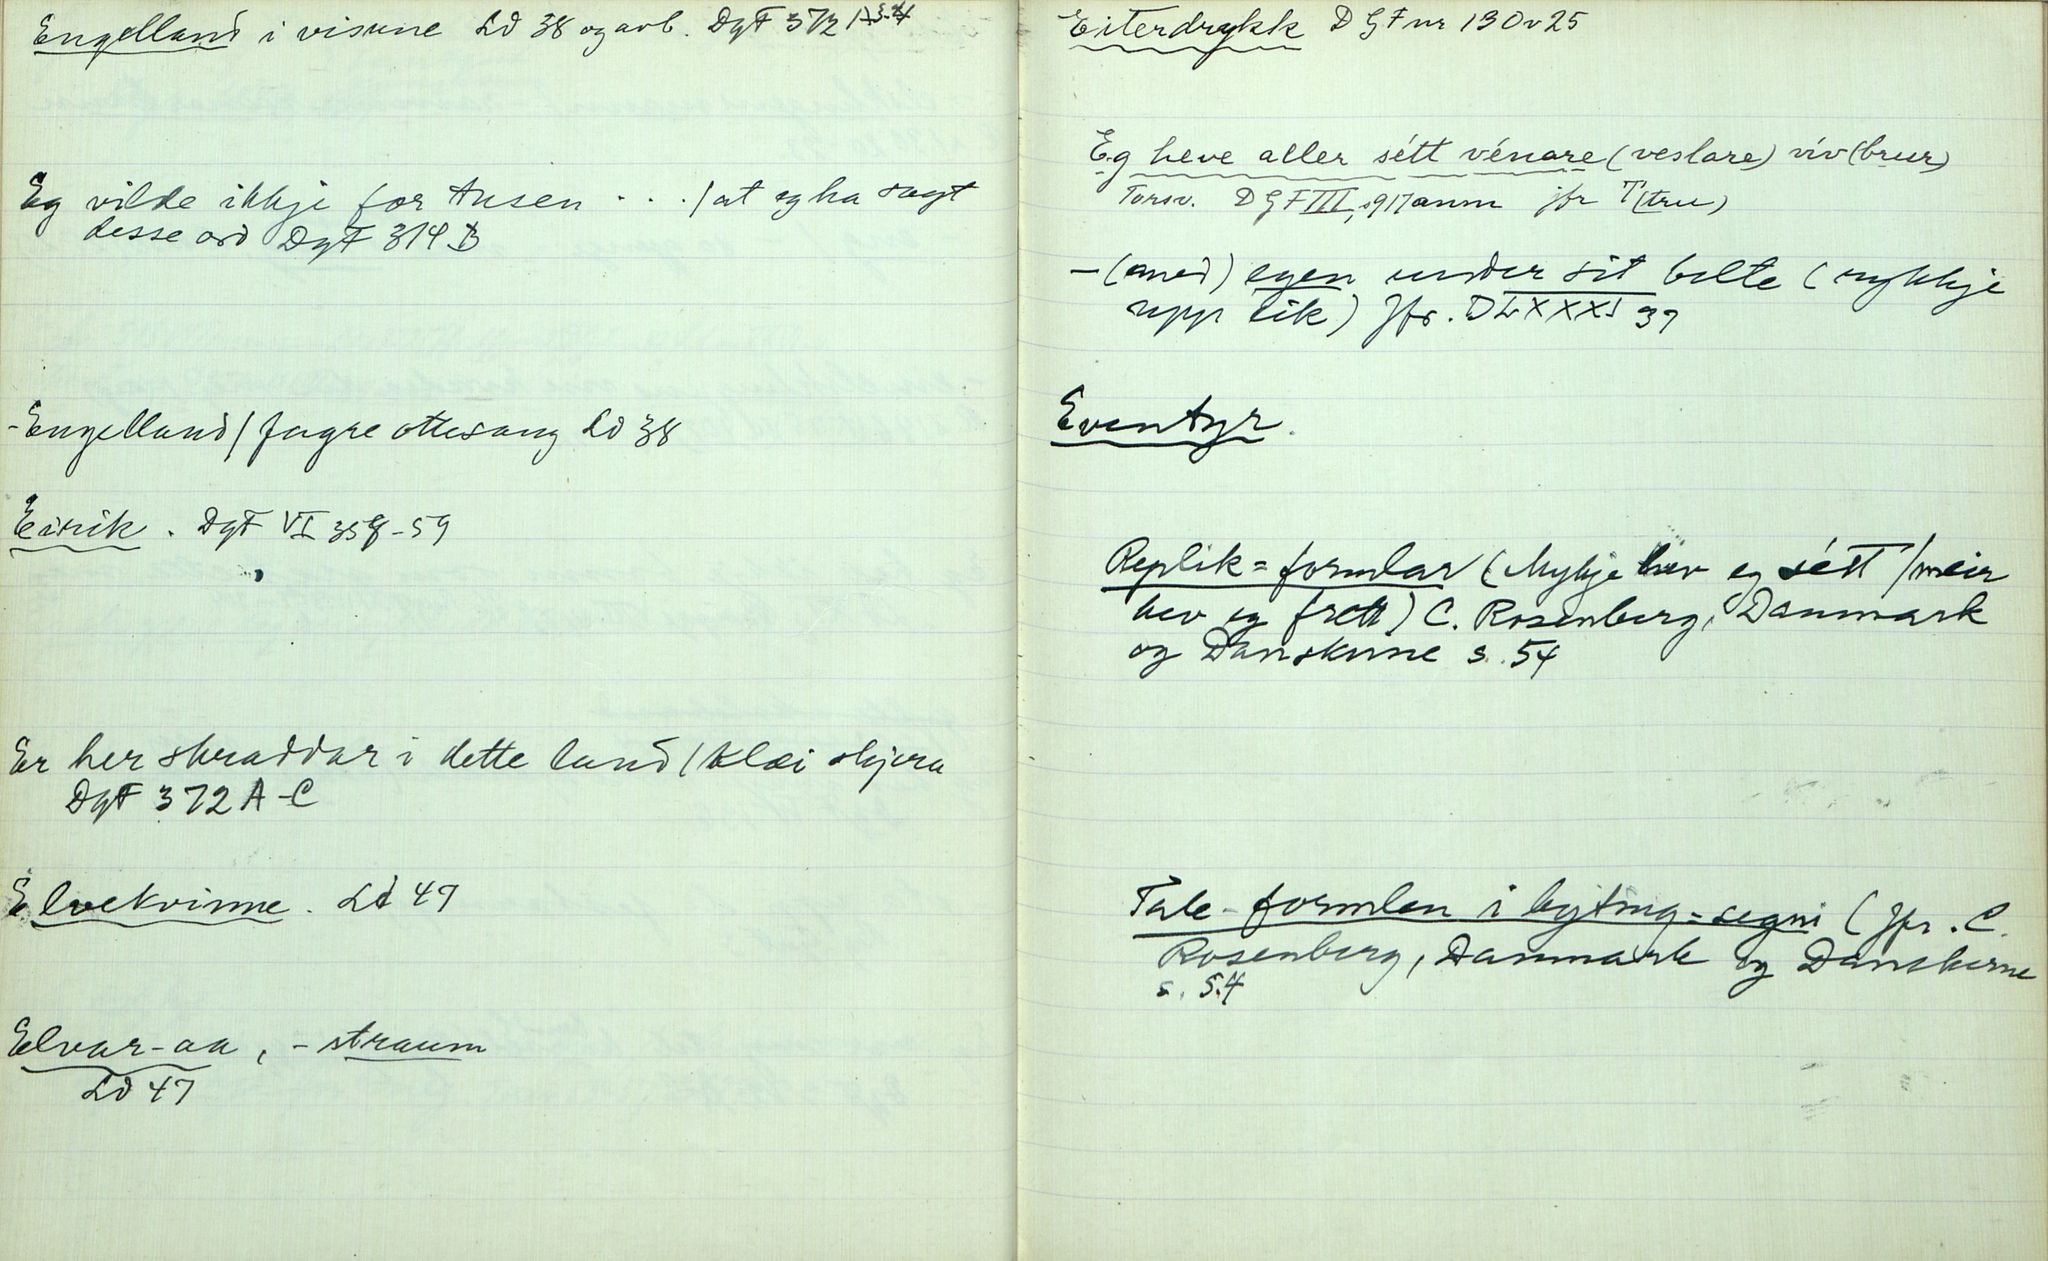 Engelland i visune Ld 38 og avl. DgF 372 A s. 4
Eg vilde ikkje for Ansen . . . / at eg ha sagt
desse ord DgF 314 B
- Engelland / fagre ottesang Ld 38
Eirik . DgF VI 358-59
Er her skraddar i dette land / klæi skjera
DgF 372 A-C
Elvekvinne . Ld 47
Elvar-aa , - straum
Ld 47
Eiterdrykk D G F nr 130 v 25
Eg heve aller sétt vénare (veslare) viv (brur)
Torsv. D G F III, s 917 anm jfr T(tru)
- (med) egen under sit belte ( rykkje
upp eik) Jfr. D L XXXI 37
Eventyr.
Replik = formlar (Mykje hev eg sétt / meir
hev eg frett) C. Rosenberg, Danmark
og Danskerne s. 54
Tale - formlen i byting = segni (Jfr. C.
Rosenberg, Danmark og Danskerne
s. 54